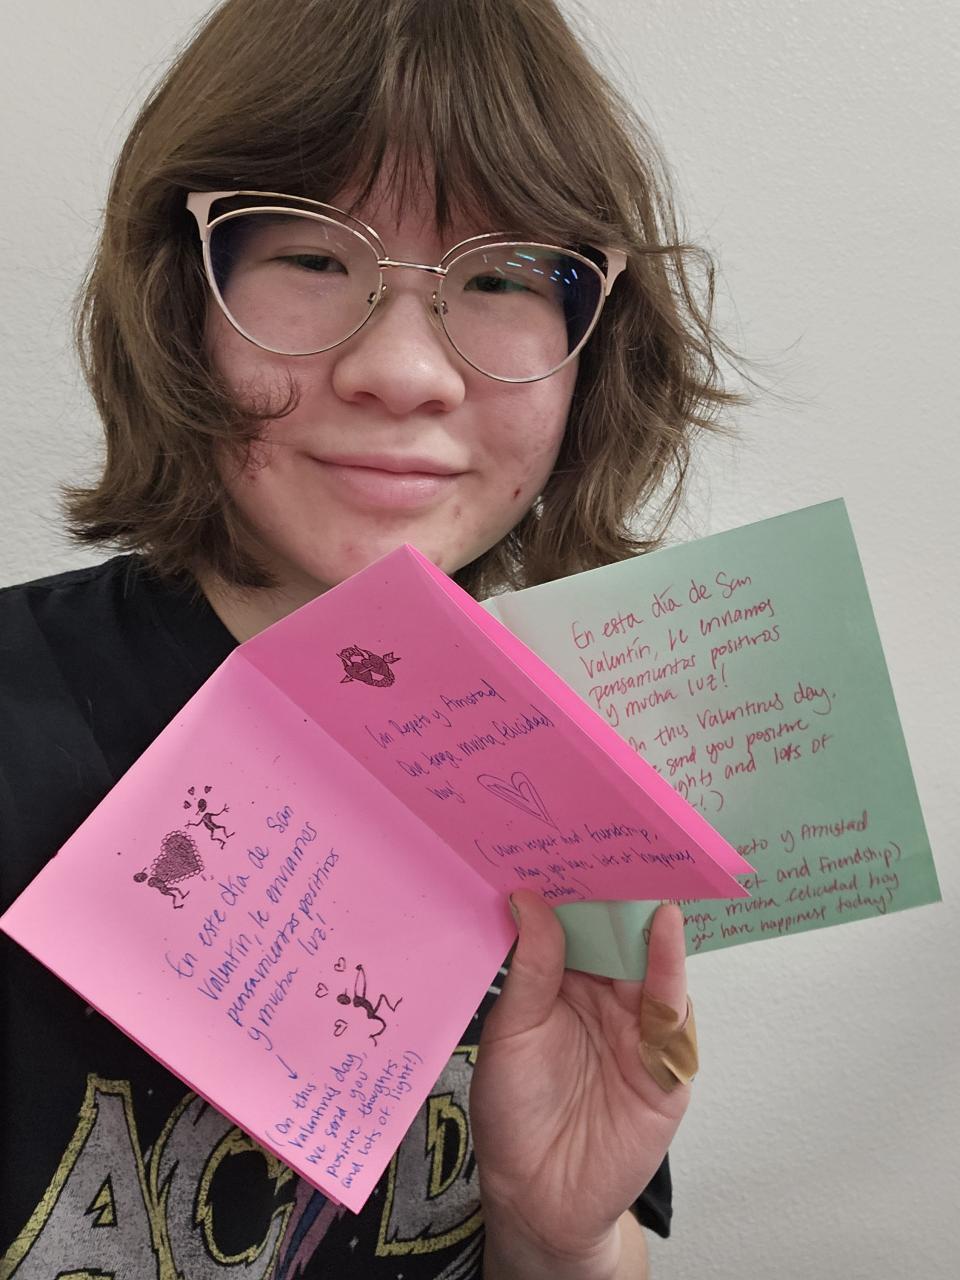 En este día de San
Valentín, le enviamos
pensamientos positivos
y mucha luz!
(On this
Valentines day,
we send you,
positive thoughts
and lots of light!)
Con Respeto y Amistad
Que tenga mucha felicidad
hoy!
(With respect and friendship,
May you have lots of happiness
today)
En esta día de San
Valentín, le enviamos
pensamientos positivos
y mucha luz!
On this Valentines day,
send you positive
and lots of
y Amistad
and Friendship)
mucha felicidad hoy
you have happiness today)
AC D